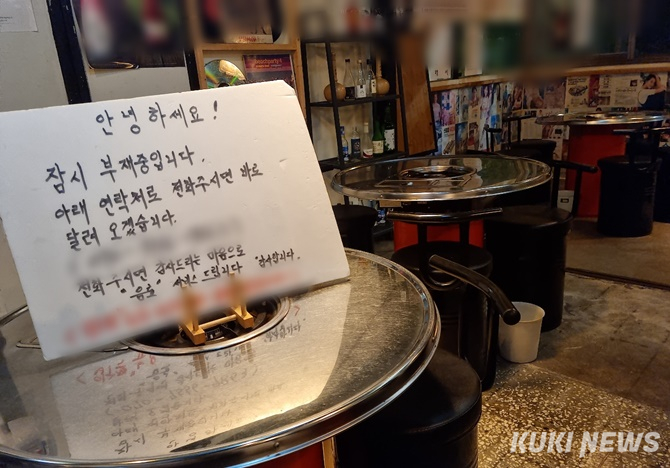 안녕하세요!
잠시 부재중입니다.
아래 연락처로 전화주시면 바로
달려 오겠습니다.
전화주시면 감사드리는 마음으로 "감사합니다.
"음료" 서비스 드립니다
KUKI NEWS